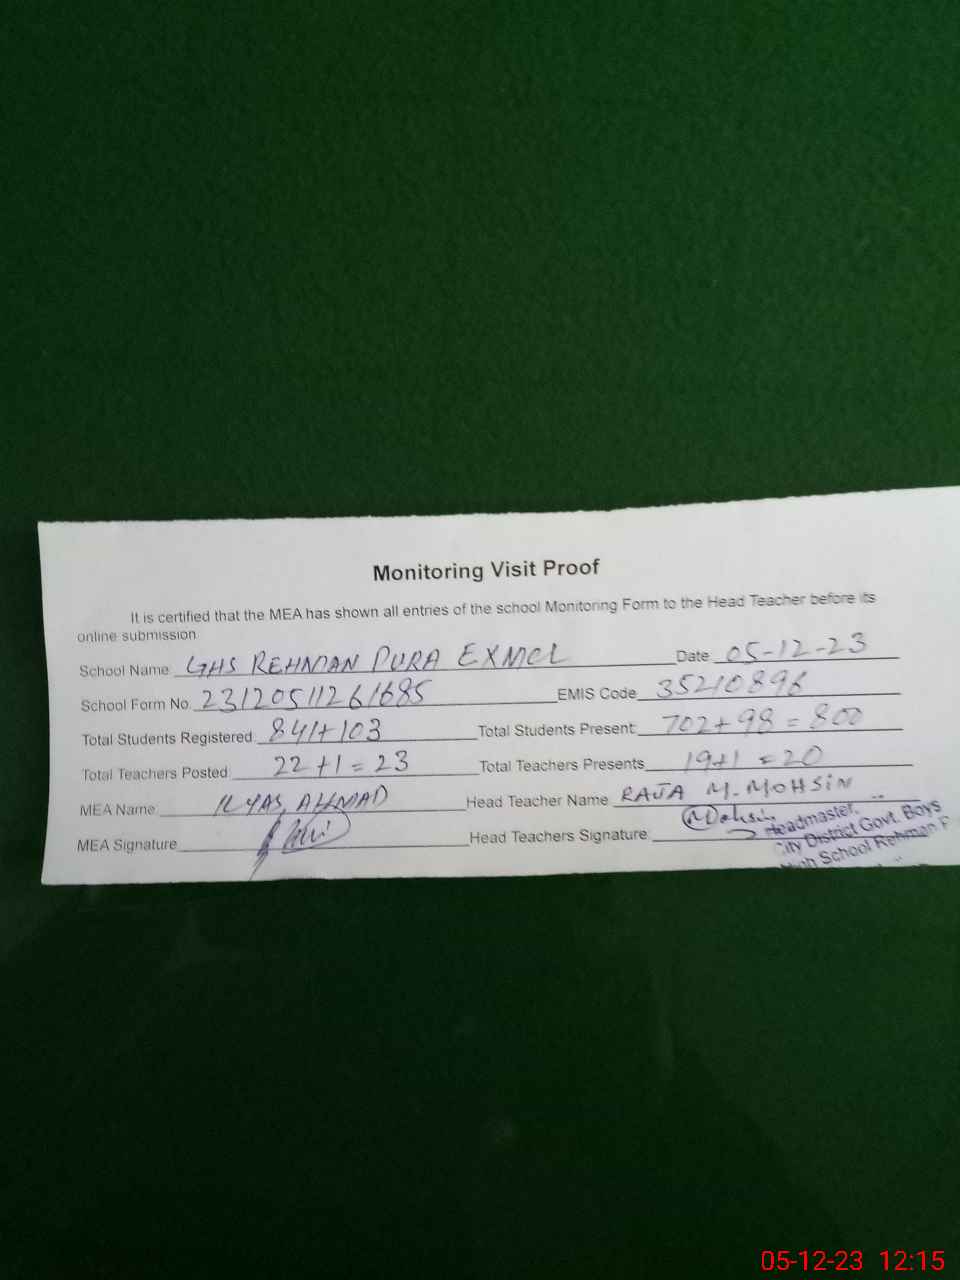 Monitoring Visit Proof
It is certified that the MEA has shown all entries of the school Monitoring Form to the Head Teacher before its
online submission
School Name GHS REHMAN PURA EXMCL Date 05-12-23
School Form No. 23120511261685 EMIS Code 35210896
Total Students Registered 841+103 Total Students Present 702+98=800
Total Teachers Posted 22+1=23 Total Teachers Presents 19+1=20
MEA Name ILYAS AHMAD Head Teacher Name RAJA M. MOHSIN
MEA Signature Head Teachers Signature Mohsin
Headmaster,
City District Govt. Boys
High School Rehman P
05-12-23 12:15